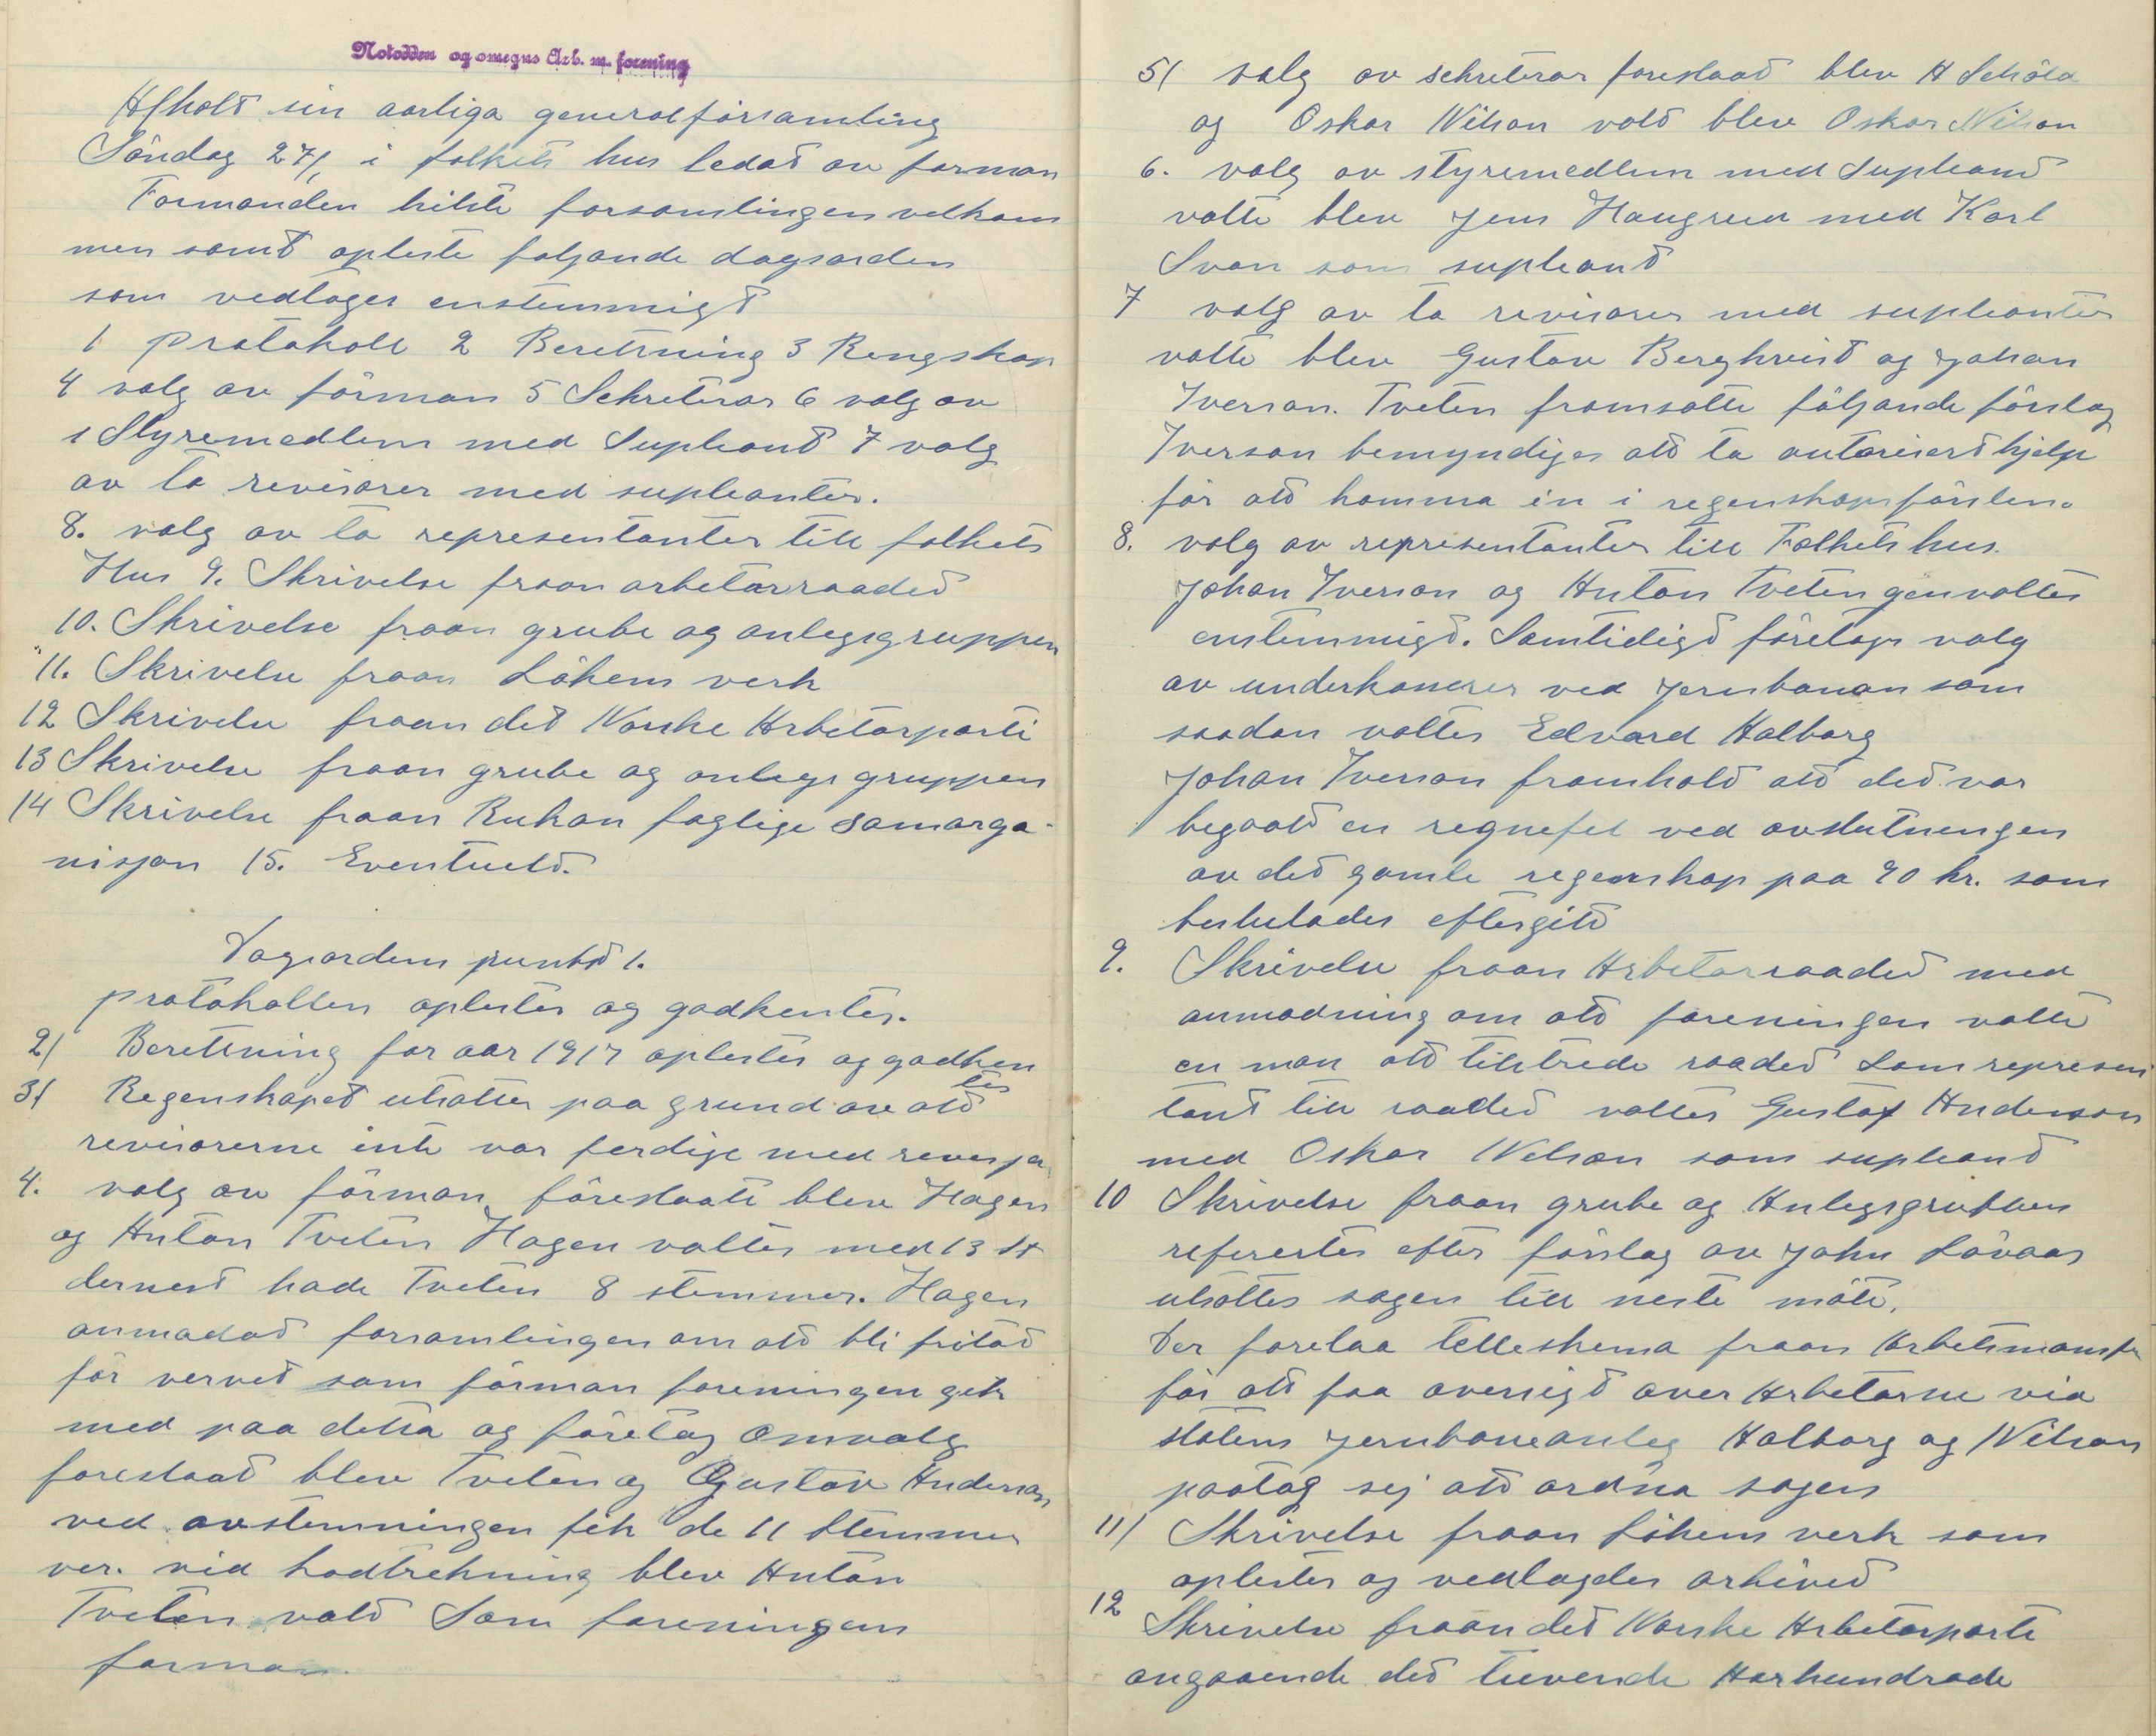 Notodden og omegns Arb. m. forening
Afholt sin aarliga generalförsamling
Söndag 27/1 i folkets hus ledat av forman
Formanden hilste forsamlingen velkom
men samt opleste foljande dagsorden
som vedtoges enstemmigt
1 protokoll 2 Beretning 3 Rengskap
4 valg av förman 5 Sekreterar 6 valg av
1 Styremedlem med Supleant 7 valg
av to revisorer med supleanter.
8. valg av to representanter till folkets
Hus 9. Skrivelse fraan arbetarraadet
10. Skrivelse fraan grube og anlegsgruppen
11. Skrivelse fraan Lökens verk
12 Skrivelse fraan det Norske Arbetarparti
13 Skrivelse fraan grube og anlegs gruppen
14 Skrivelse fraan Rukan faglige samorga-
nisjon 15. Eventuelt.
Dagsordens punkt 1.
protokollen oplestes og godkentes.
2/ Beretning for aar 1917 oplestes og godken
tes
3/ Regenskapet utsattes paa grund av att
revisorerne inte var ferdige med
4. valg av förman föreslaate blev Hagen
og Anton Tveten Hagen valtes med 13 st
dernest hade Tveten 8 stemmer. Hagen
anmodad forsamlingen om att bli fritat
för vervet som förman foreningen gek
med paa detta og företog omvalg
foreslaat blev Tveten og Gustav Anderson
ved avstemningen fek de 11 stemmer
ver. vid lodtrekning blev Anton
Tveten valt Som foreningens
forman.
5/ valg av sekreterar foreslaat blev A Schöld
og Oskar Nilson valt blev Oskar Nilson
6. valg av styremedlem med Supleant
valte blev Jens Haugrud med Karl
Svan som supleant
7 valg av to revisorer med supleanter
valte blev Gustav Berghvist og Johan
Iverson. Tveten framsatte följande förslag
Iverson bemyndiges att ta autorisert hjelp
för att komma in i regenskapsförslen.
8. valg av representanter till Folkets hus.
Johan Iverson og Anton Tveten genvaltes
enstemmigt. Samtidigt företogs valg
av underkaserer ved Jernbanan som
saadan valtes Edvard Halborg
Johan Iverson framholt att det var
begaatt en regnefel ved avslutningen
av det gamle regenskap paa 90 kr. som
beslutades eftergitt
9. Skrivelse fraan Arbetarraadet med
anmodning om att foreningen valte
en man att tilltrede raadet som represen
tant till raadet valtes Gustaf Anderson
med Oskar Nelson som supleant
10 Skrivelse fraan grube og Anlegsgruppen
referertes efter förslag av John Lövaas
utsattes sagen till neste möte.
Der forelaa telleskema fraan Arbetsmansf
för att faa oversigt over Arbetarne vid
statens jernbaneanleg Halborg og Nilson
paatog sej att ordna sagen
11/ Skrivelse fraan Lökens verk som
oplestes og vedlagdes arkivet
12 Skrivelse fraan det Norske Arbetarparti
angaaende det tuevende Aarhundrade